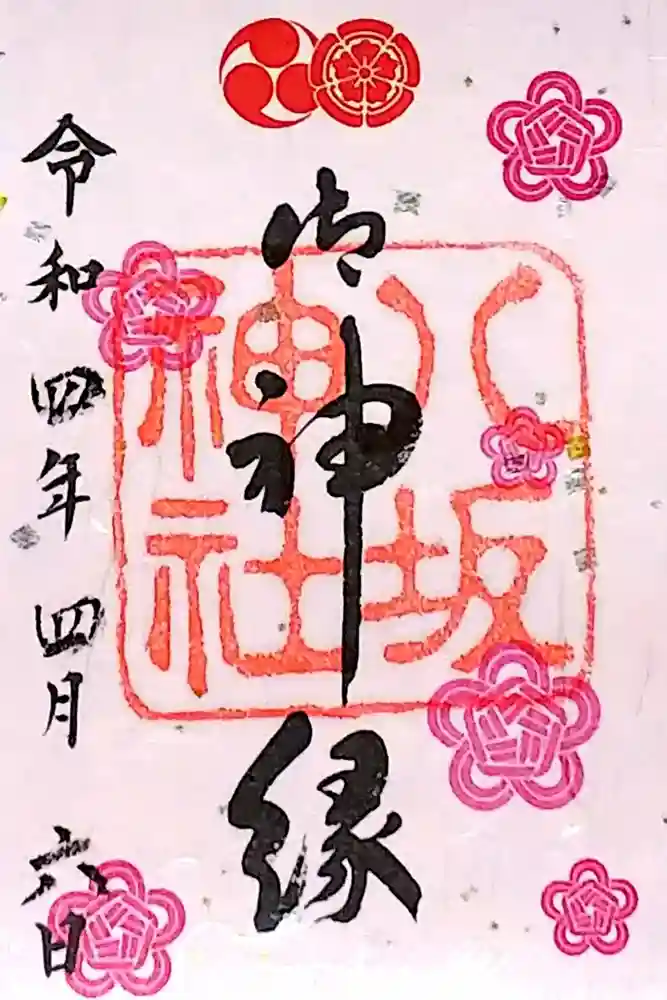 御神縁
八坂
神社
令和四年四月六日